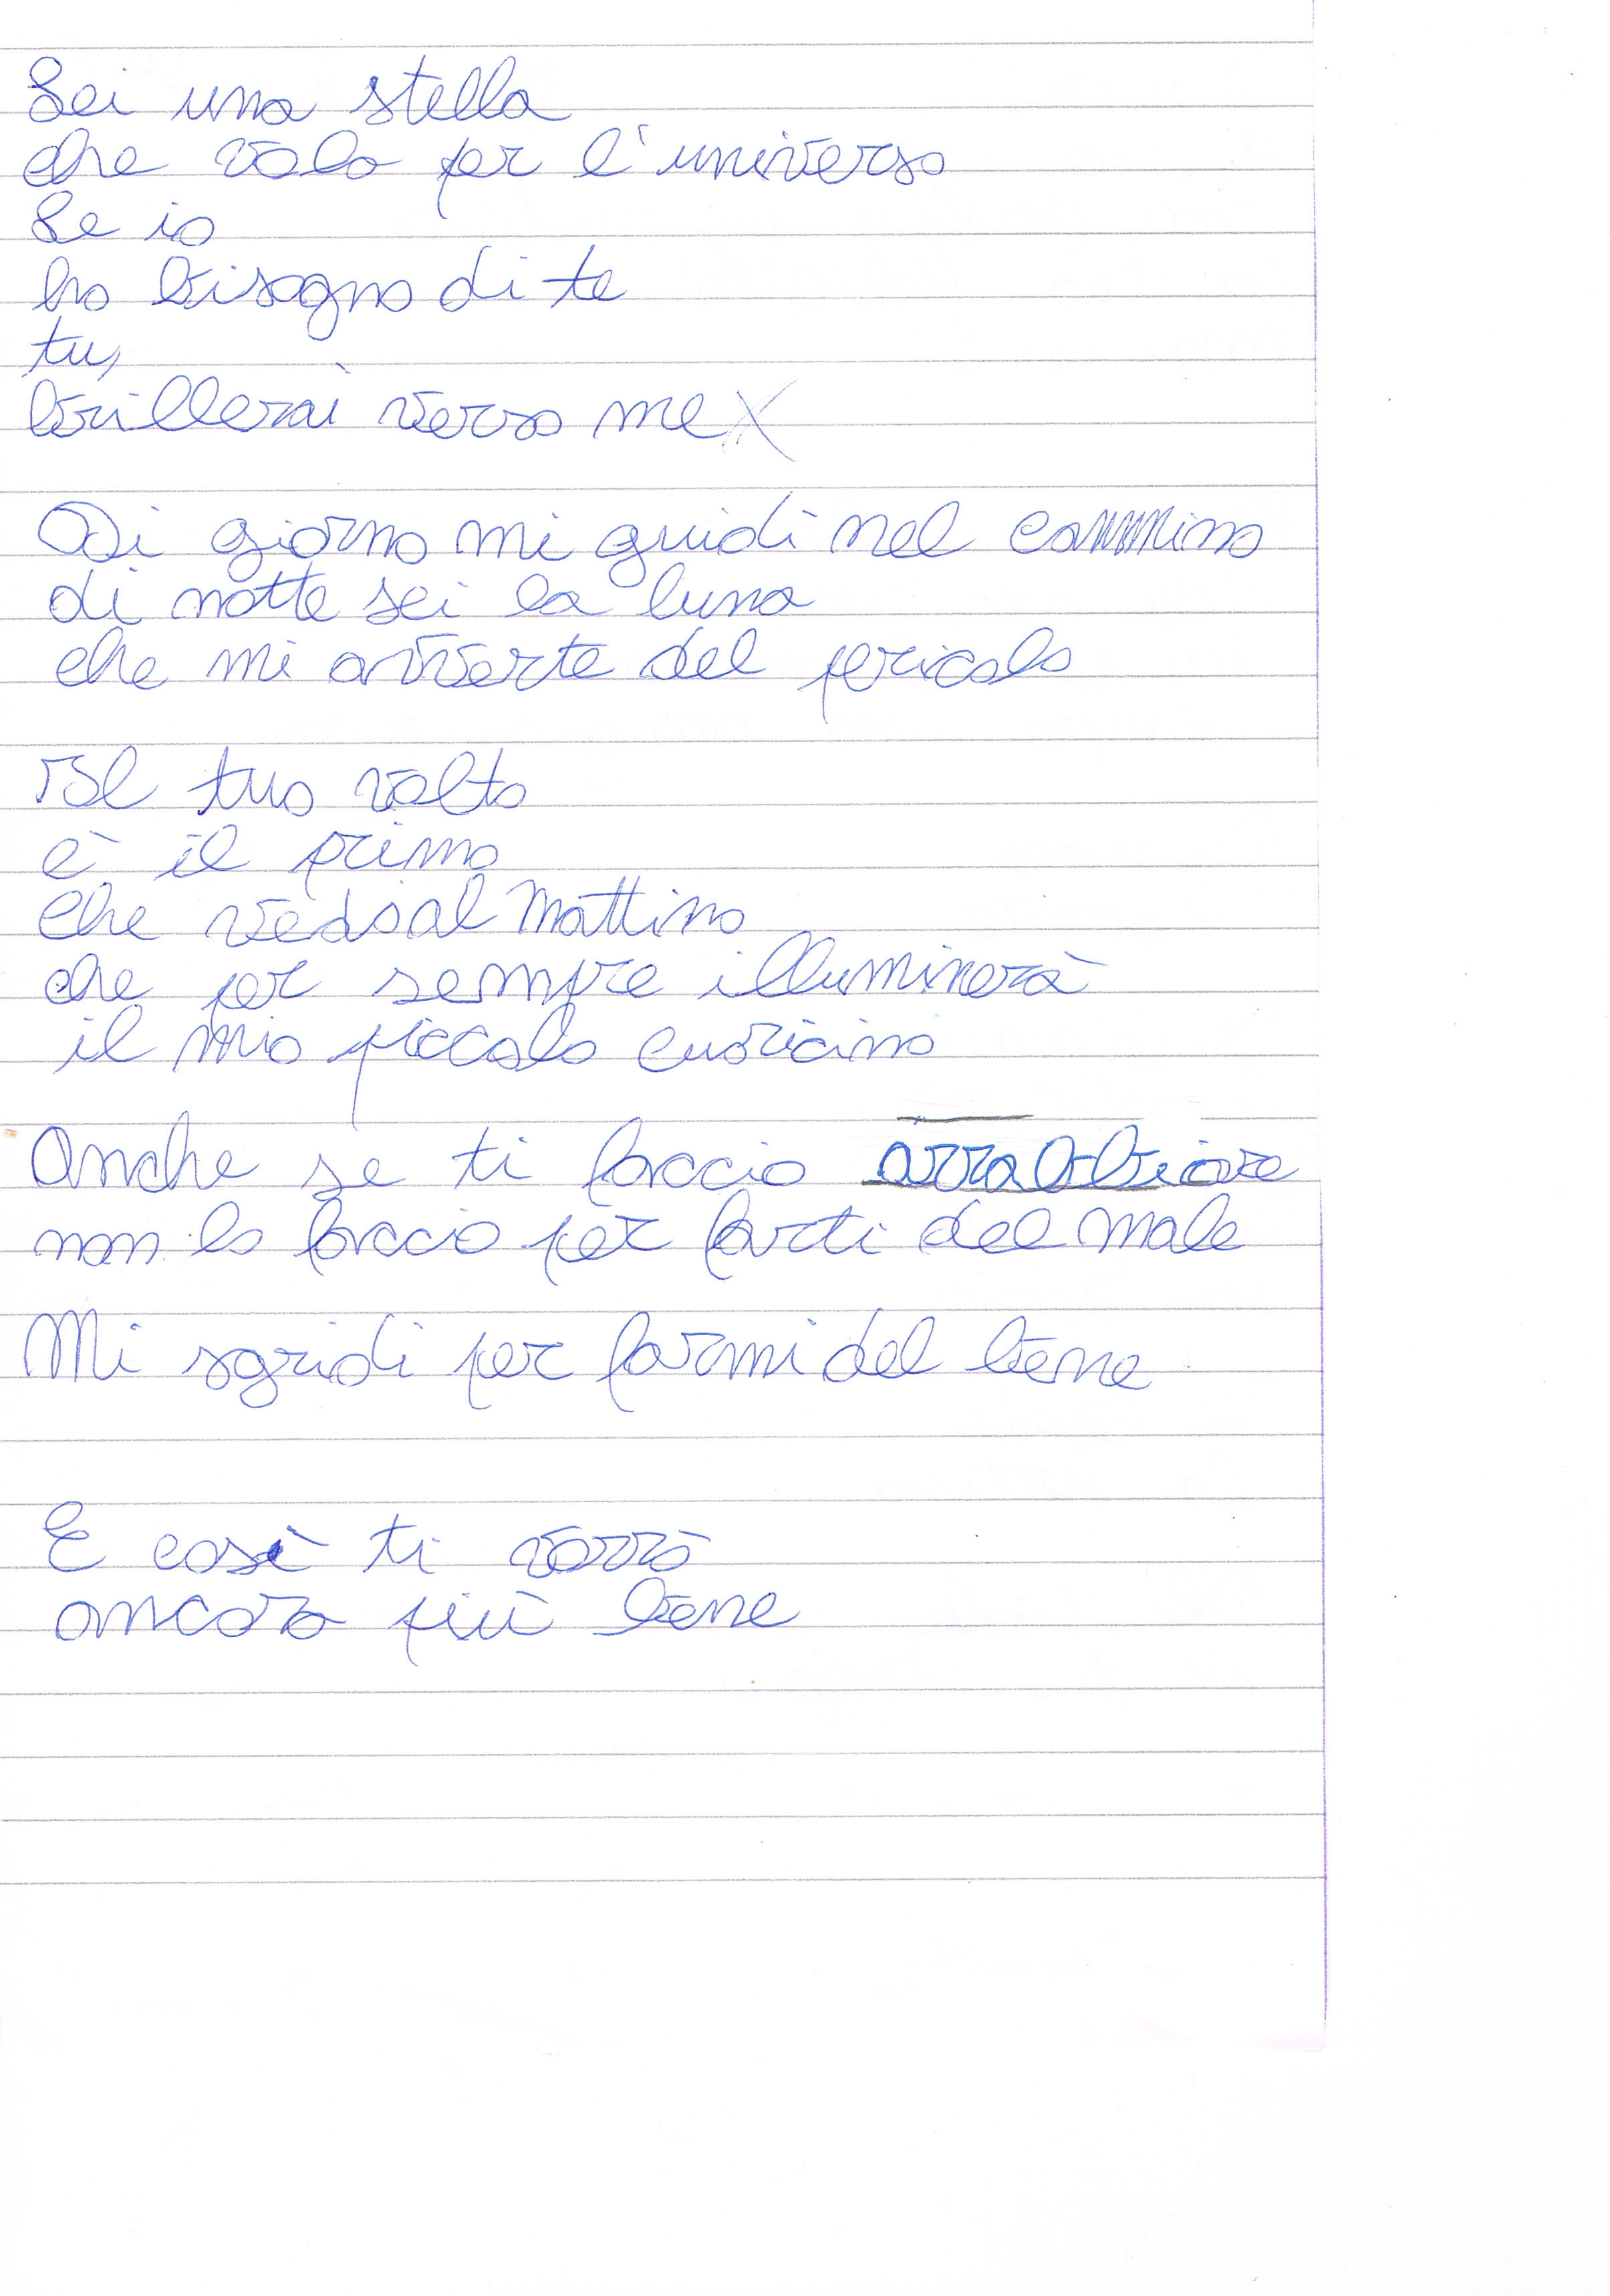 Sei una stella
che vola per l'universo
Se io
ho bisogno di te
tu,
brillerai verso me
Di giorno mi guidi nel cammino
di notte sei la luna
che mi avverte del pericolo
Il tuo volto
è il primo
che vedo al mattino
che per sempre illuminerà
il mio piccolo cuoricino
Anche se ti faccio arrabbiare
non lo faccio per farti del male
Mi sgridi per farmi del bene
E così ti vorrò
ancora più bene